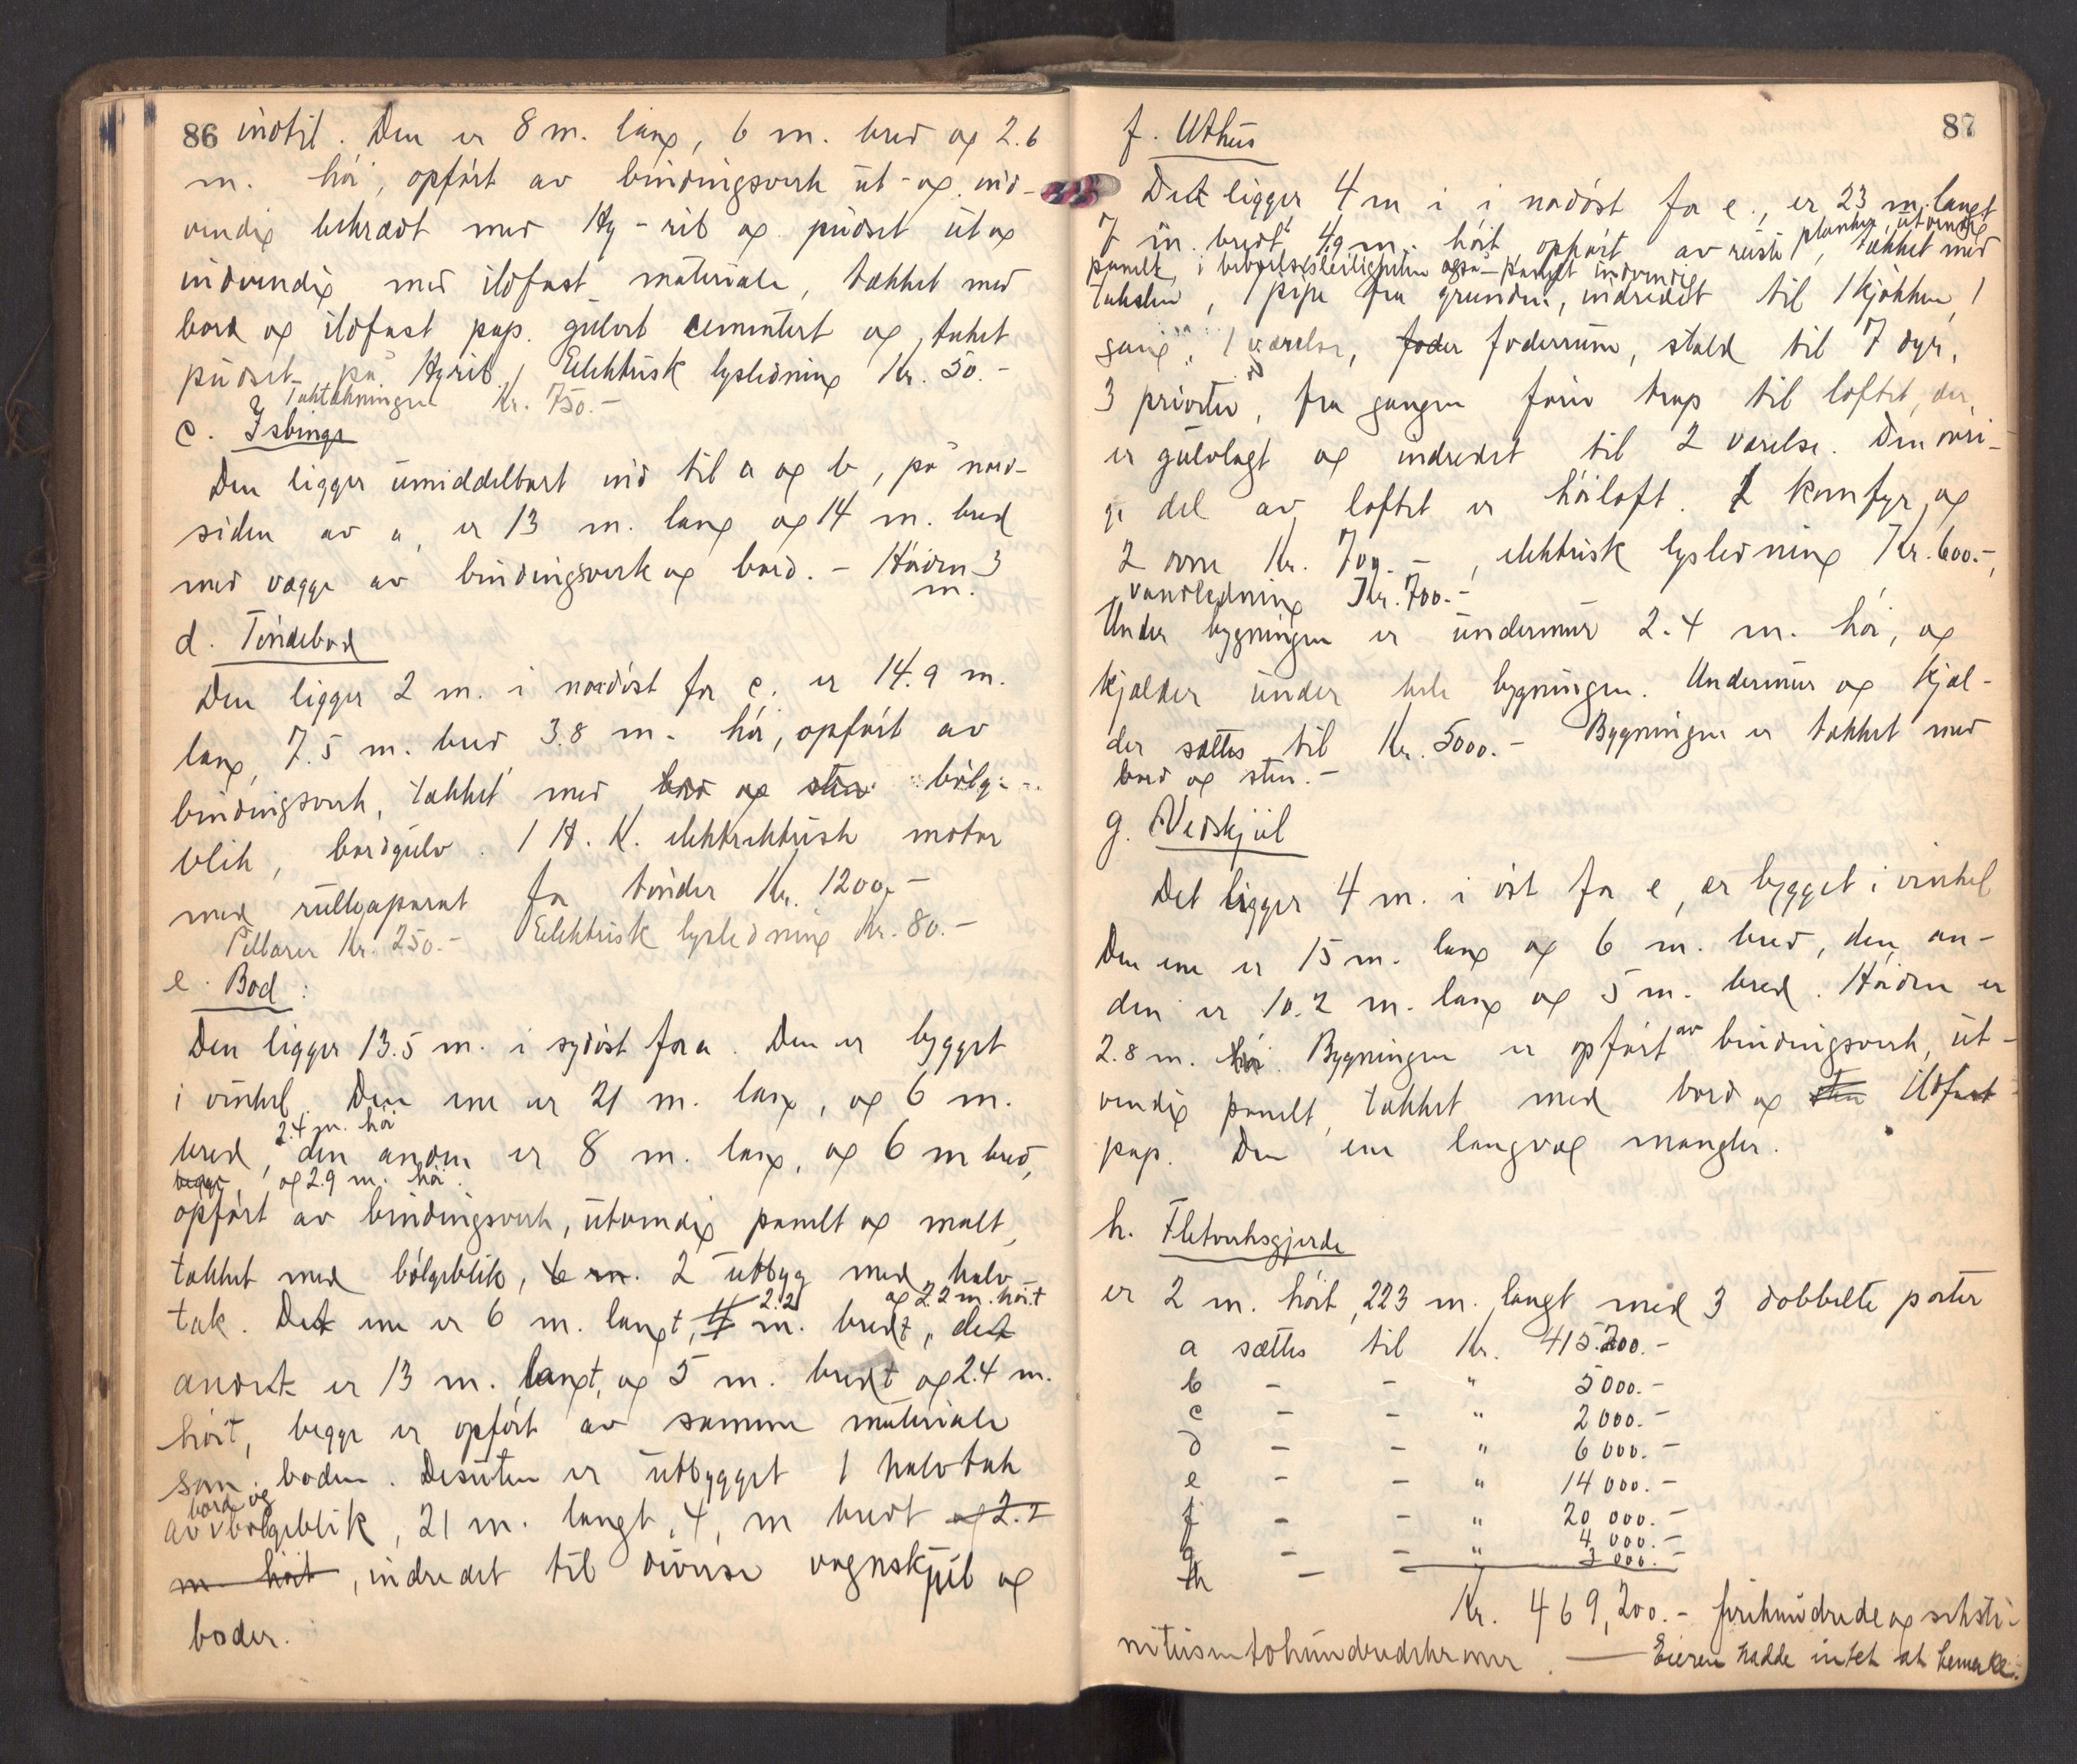 86 indtil. Den er 8 m. lang, 6 m. bred og 2.6
m. høi, opført av bindingsverk ut- og ind-
vendig behrædt med Hy-rib og pudset ut og
indvendig med ildfast materiale, tækket med
bord og ildfast pap. gulvet cementert og taket
pudset på Hyrib. Elektrisk lysledning Kr. 50.-
Taktækningen Kr. 750.-
c. Isbinge
Den ligger umiddelbart ind til a og b, på nord-
siden av a, er 13 m. lang og 14 m. bred
med vægge av bindingsverk og bord. - Høiden 3
m.
d. Tøndebod
Den ligger 2 m. i nordøst for c. er 14.9 m.
lang, 7.5 m. bred 3.8 m. høi, opført av
bindingsverk, tækket med bord og sten bølge-
blik, bordgulv. 1 H.K. elektrektrisk motor
med rulleaparat for tønder Kr. 1200.-
Pillarer Kr. 250.- Elektrisk lysledning Kr. 80.-
e. Bod:
Den ligger 13.5 m. i sydøst for a. Den er bygget
i vinkel. Den ene er 21 m. lang, og 6 m.
2.4 m. høi
bred, den anden er 8 m. lang, og 6 m bred,
begge, og 2.9 m. høi.
opført av bindingsverk, utvendig panelt og malt,
tækket med bølgeblik, 6 m. 2 utbyg med halv-
2.2 og 2.2 m. høit
tak. Det ene er 6 m. langt, 4 m. bredt, det
andet er 13 m. langt, og 5 m. bredt og 2.4 m.
høit, begge er opført av samme materiale
som boden. Desuten er utbygget 1 halvtak
bord og
av bølgeblik, 21 m. langt, 4, m bredt og 2.2
m høit, indredet til diverse vognskjul og
boder.
87
f. Uthus
Det ligger 4 m i i nordøst for e., er 23 m. langt
planker, utvendig
7 m. bredt, 4.9 m. høit opført av reiste, tækket med
panelt, i beboelsesleiligheten også panelt indvendig
taksten, 1 pipe fra grunden, indredet til 1 kjøkken, 1
gang, 1 værelse, foder foderrum, stald til 7 dyr,
3 priveter, fra gangen fører trap til loftet, der
er gulvlagt og indredet til 2 værelse. Den øvri-
ge del av loftet er høiloft. 1 komfyr og
2 ovne Kr. 700.-, elektrisk lysledning Kr. 600.-,
vandledning Kr. 700.-
Under bygningen er undermur 2.4 m. høi, og
kjælder under hele bygningen. Undermur og kjæl-
der sættes til Kr. 5000.- Bygningen er tækket med
bord og sten.-
g. Vedskjul
Det ligger 4 m. i øst for e, er bygget i vinkel
Den ene er 15 m. lang og 6 m. bred, den an-
den er 10.2 m. lang og 5 m. bred. Høiden er
2.8 m. høi. Bygningen er opført av bindingsverk, ut-
vendig panelt, tækket med bord og sten ildfast
pap. Den ene langvæg mangler.
h. Fletverksgjerde
er 2 m. høit, 223 m. langt med 3 dobbelte porter
a sættes til Kr. 415.200.-
b - - " 5000.-
c - - " 2000.-
d - - " 6000.-
e - - " 14000.-
f - - " 20 000.-
g - - " 4 000.-
h - 3 000.-
Kr. 469,200.- firehundrede og seksti-
nitusentohundredekroner. — Eieren hadde intet at bemerke.